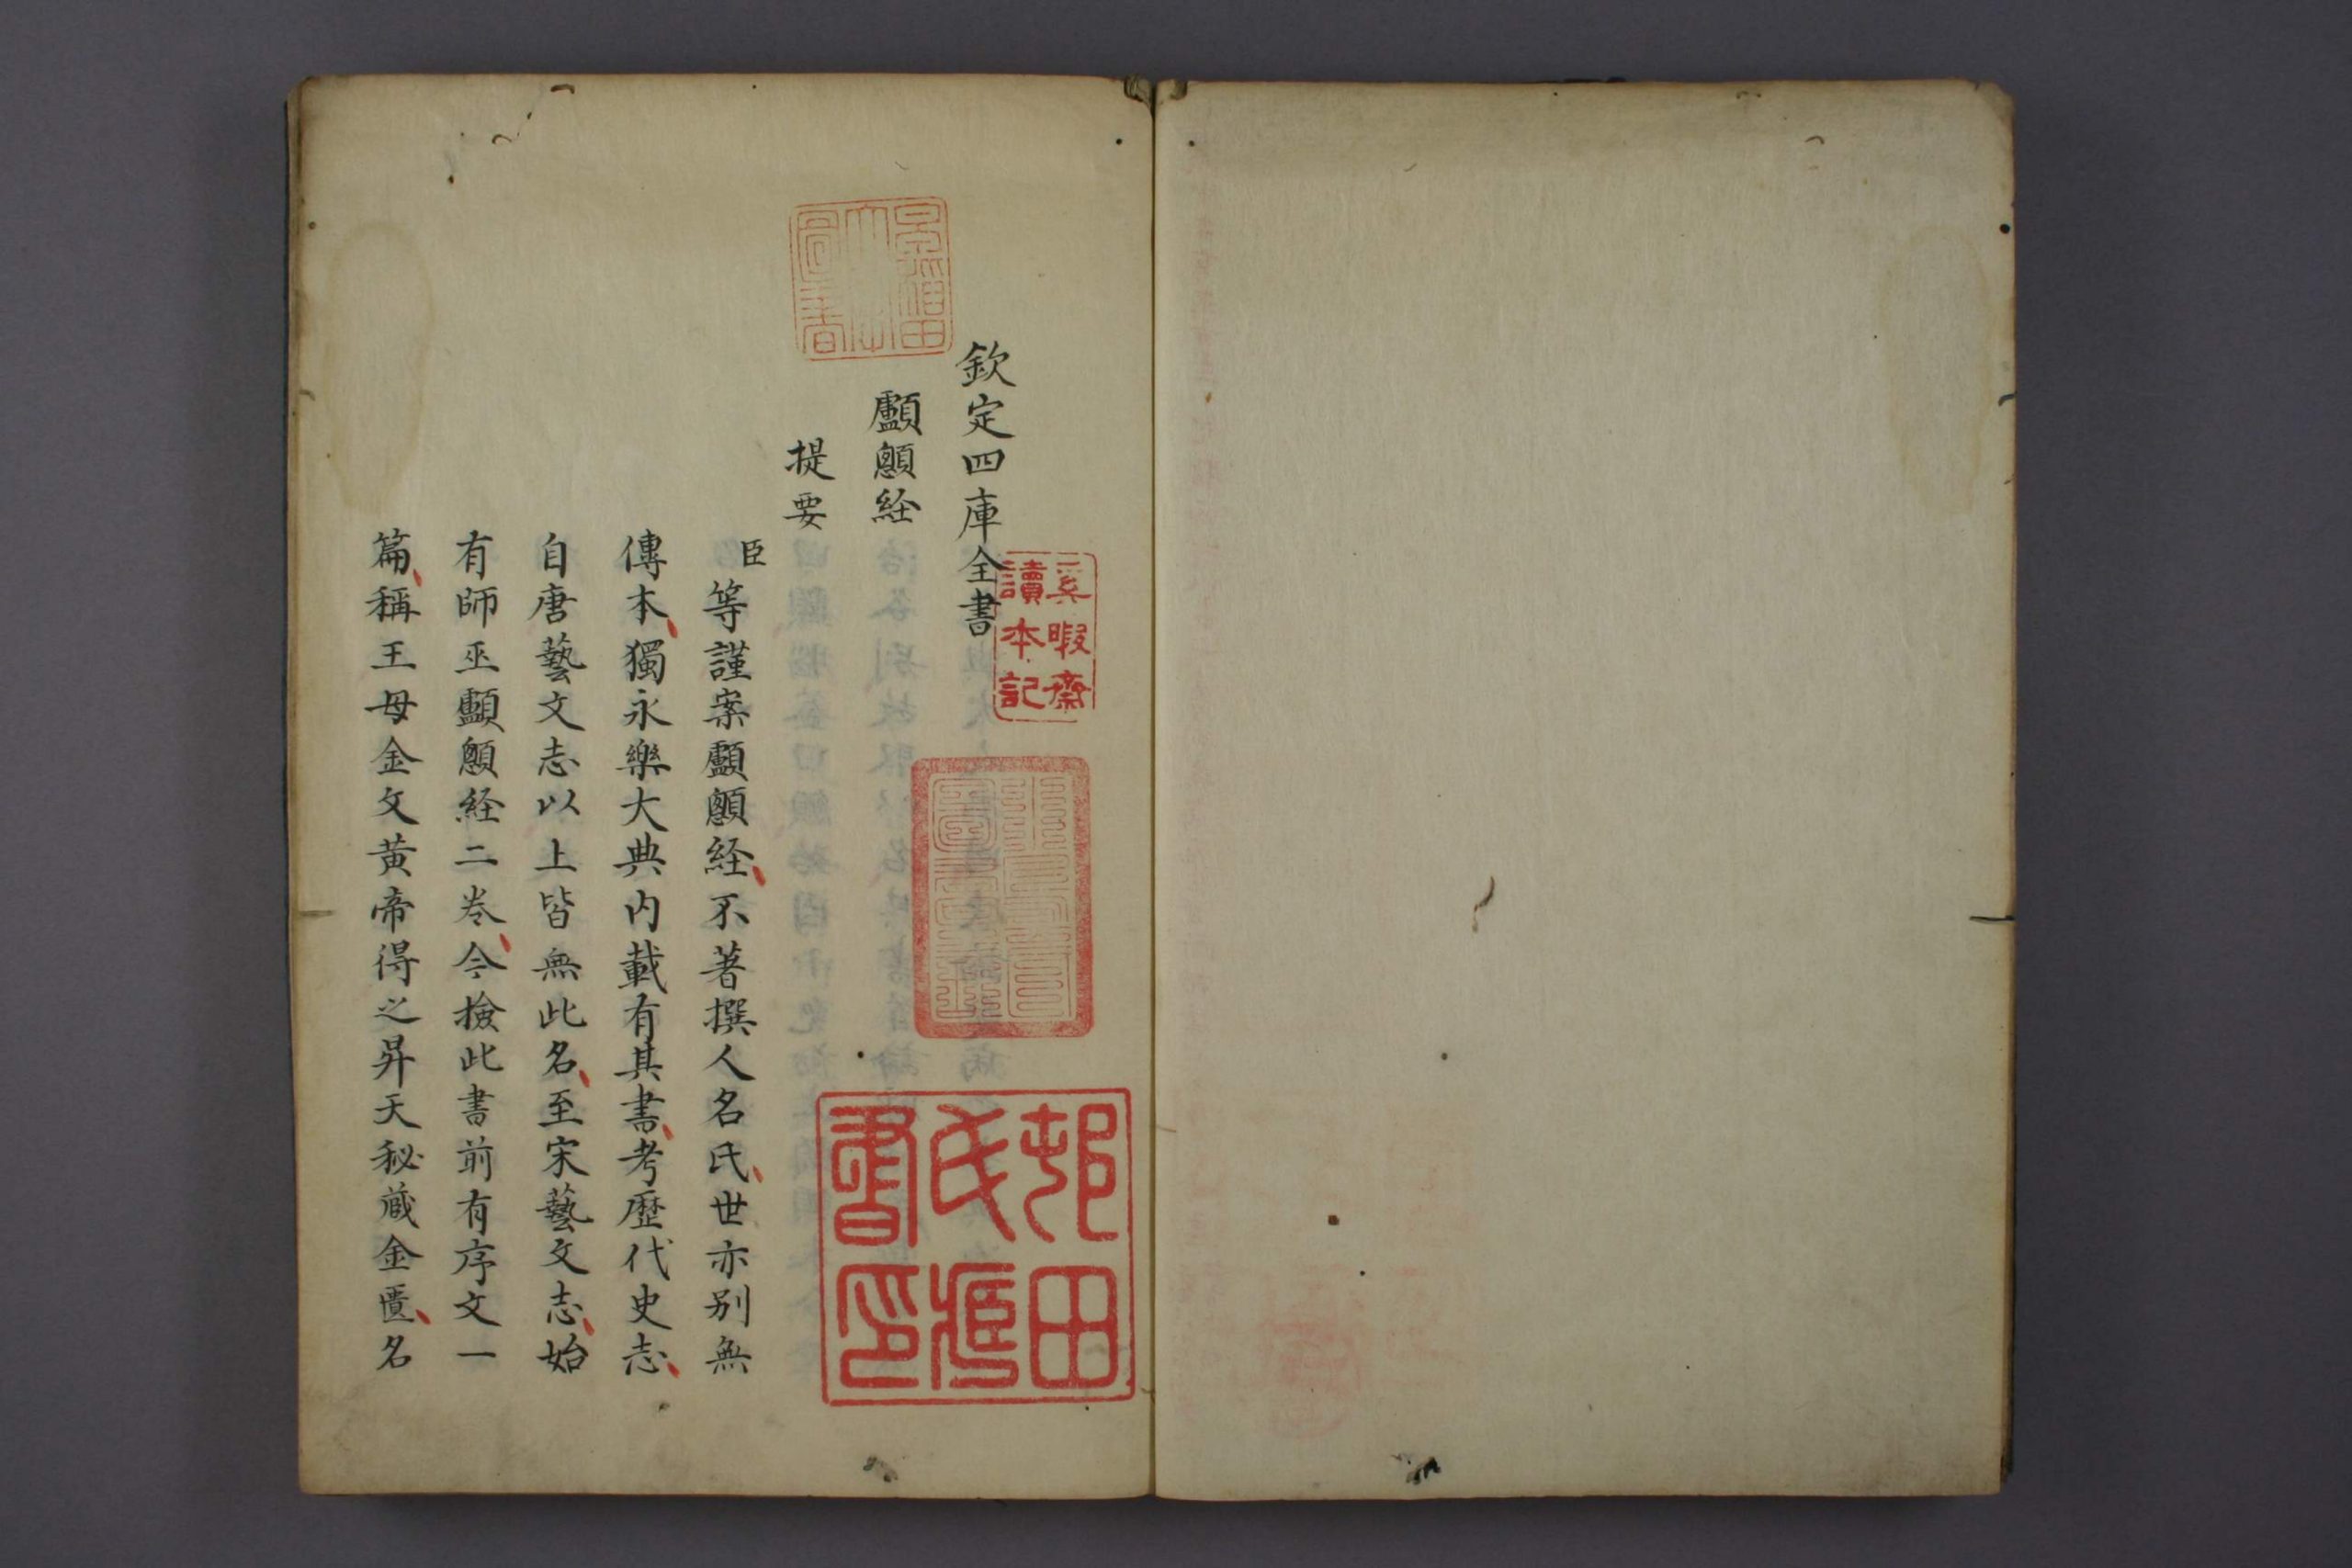 欽定四庫全書
顱顖経
提要
臣等謹案顱顖経不著撰人名氏世亦别無
傳本獨永樂大典内載有其書考歷代史志
自唐藝文志以上皆無此名至宋藝文志始
有師巫顱顖経二卷今撿此書前有序文一
篇稱王母金文黃帝得之昇天秘藏金匱名
奚暇齋
讀本記